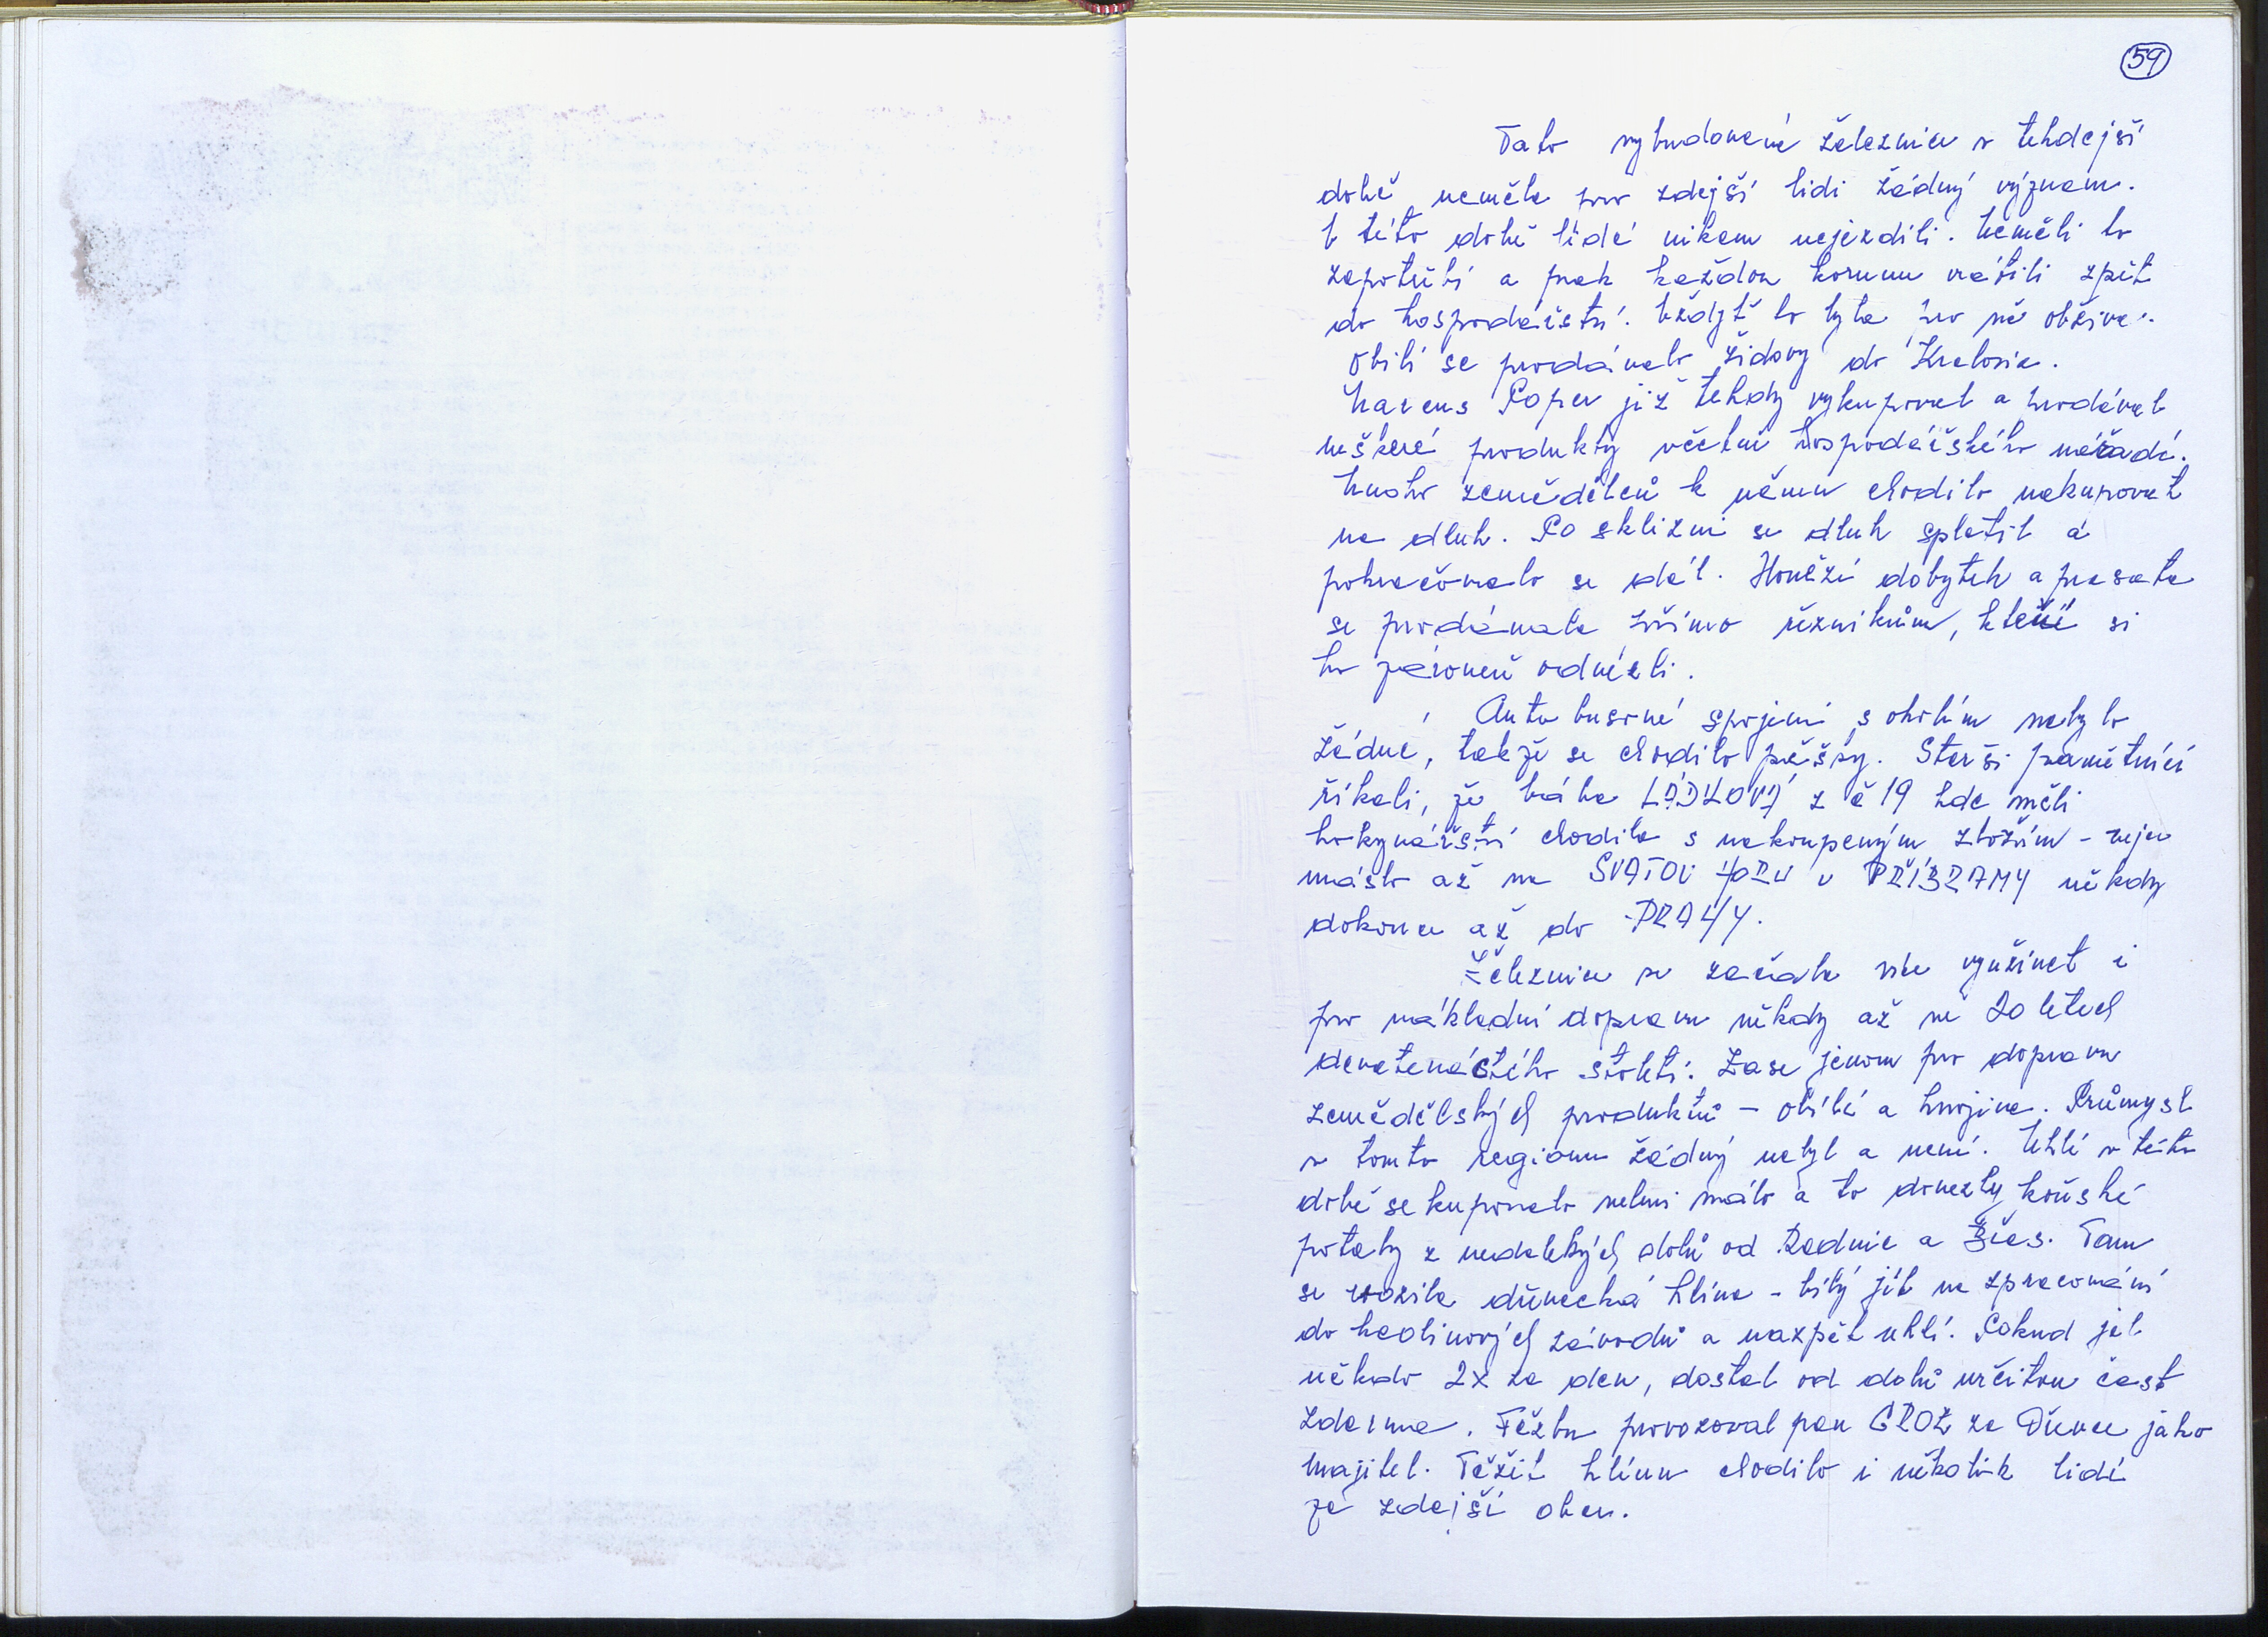 59
Tato vybudovaná železnice v tehdejší
době neměla pro zdejší lidi žádný význam.
V této době lidé nikam nejezdili. Neměli to
zapotřebí a pak každou korunu vrátili zpět
do hospodářství. Vždyť to byla pro ně obživa.
Obilí se prodávalo židovy do Kralovic.
Marcus Poper již tehdy vykupoval a prodával
veškeré produkty včetně hospodářského nářadí.
Mnoho zemědělců k němu chodilo nakupovat
na dluh. Po sklizni se dluh splatil a
pokračovalo se dál. Hovězí dobytek a prasata
se prodávala přímo řezníkům, kteří si
to zároveň odvézli.
Autobusové spojení s okolím nebylo
žádné, takže se chodilo pěšky. Starší pamětníci
říkali, že bába LÁDKOVÁ z č 19 kde měli
hokynářství chodila s nakoupeným zbožím - vejce
máslo až na SVATOU HORU u PŘÍBRAMY někdy
dokonce až do PRAHY.
Železnice se začala více využívat i
pro nákladní dopravu někdy až ve 20 letech
devatenáctého století. Zase jenom pro dopravu
zemědělských produktů - obilí a hnojiva. Průmysl
v tomto regionu žádný nebyl a není. Uhlí v této
době se kupovalo velmi málo a to dovezly koňské
potahy z nedalekých dolů od Radnic a Břas. Tam
se vozila dřevecká hlína - bílý jíl na zpracování
do kaolinových závodů a nazpět uhlí. Pokud jel
někdo 2x za den, dostal od dolů určitou část
zdarma. Těžbu provozoval pan GROŽ ze Dřevce jako
majitel. Těžit hlínu chodilo i několik lidí
ze zdejší obce.